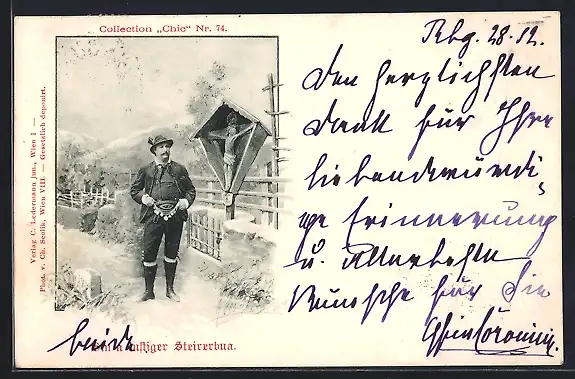 Collection „Chic“ Nr. 74.
Verlag C. Ledermann jun., Wien I —
Phot. v. Ch. Scolik, Wien VIII. — Gesetzlich deponirt.
Rbg. 28·12.
Den herzlichsten
Dank für Ihre
liebenswürdi-
ge Erinnerung
u. allerbeste
Wünsche für Sie
beide
lustiger Steirerbua.